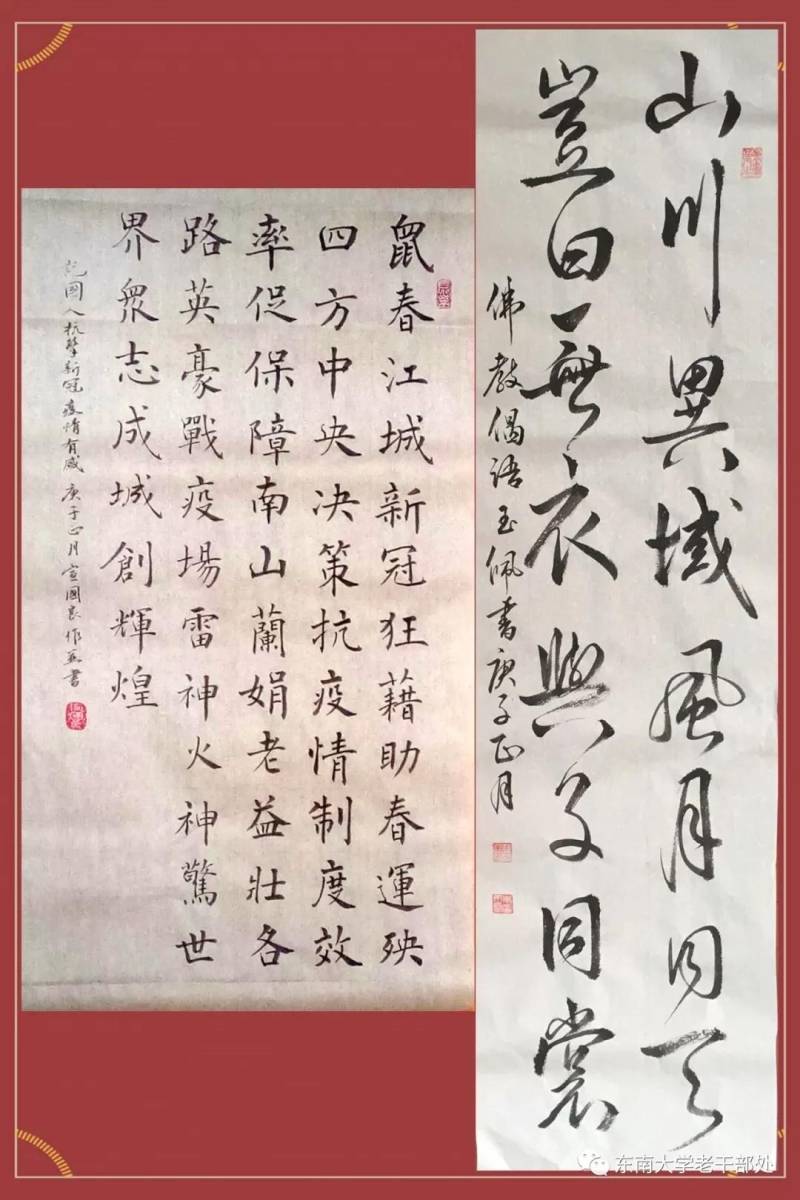 山川異域風月同天
豈曰無衣與子同裳
佛教偈語玉佩書庚子正月
鼠春江城新冠狂藉助春運殃
四方中央决策抗疫情制度效
率促保障南山蘭娟老益壯各
路英豪戰疫場雷神火神驚世
界衆志成城創輝煌
國人抗擊新冠疫情有感 庚子正月 宣國良作並書
东南大学老干部处